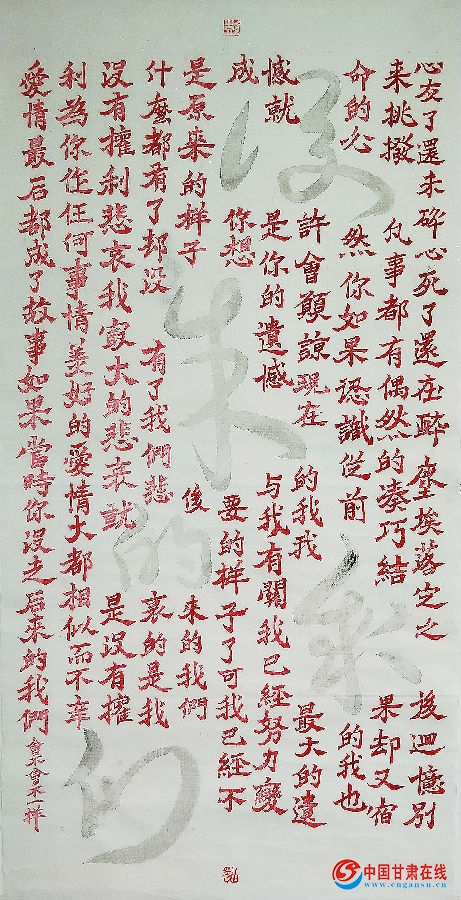 心友了還未碎心死了還在醉塵埃落定之後迴憶別
来挑撥凡事都有偶然的湊巧結果却又宿
命的必然你如果認識從前的我也
許會願諒現在的我我最大的遺
憾就是你的遺憾与我有關我已經努力變
成你想要的样子了可我已經不
是原来的样子後来的我們
什麼都有了却没有了我們悲哀的是我
没有權利悲哀我最大的悲哀就是没有權
利為你作任何事情美好的愛情大都相似而不幸
愛情最后都成了故事如果當時你没走后来的我們會不會不一样
後来的我们
中国甘肃在线
www.cngansu.cn